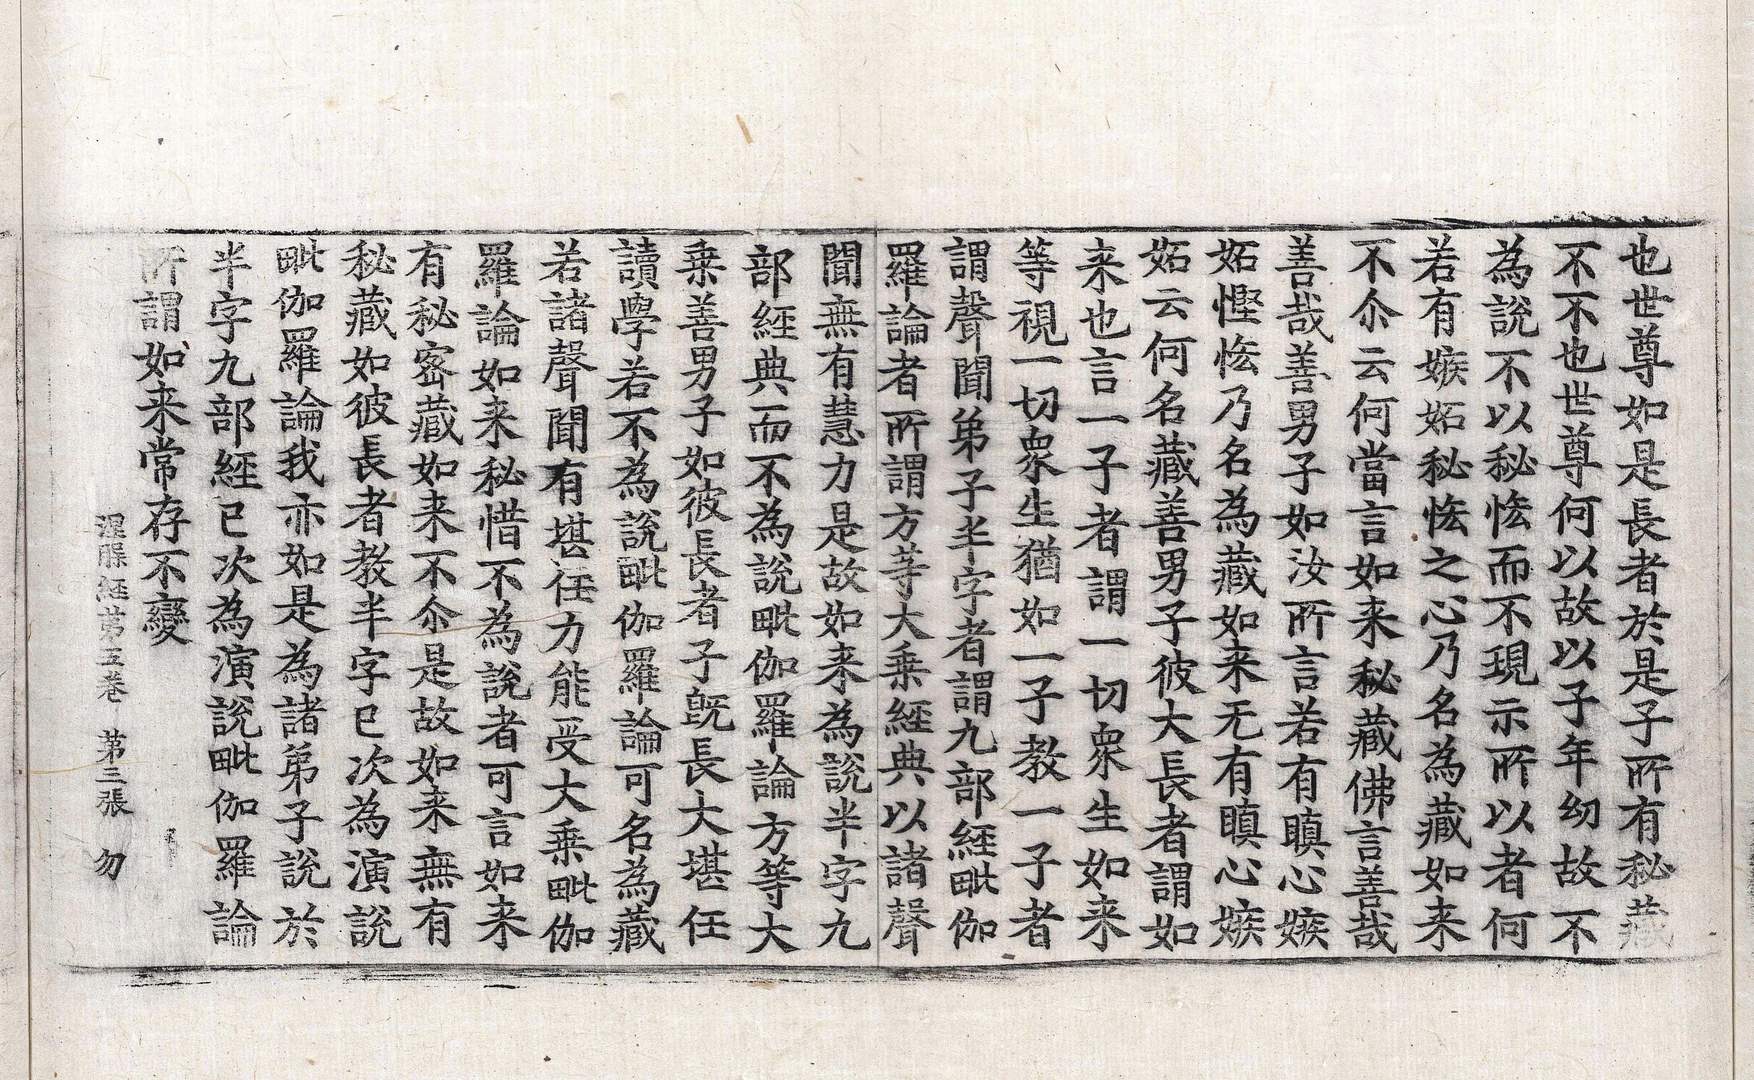 也世尊如是長者於是子所有秘藏
不不也世尊何以故以子年幼故不
為說不以秘恡而不現示所以者何
若有嫉妬秘恡之心乃名為藏如来
不尒云何當言如来秘藏佛言善哉
善哉善男子如汝所言若有瞋心嫉
妬慳恡乃名為藏如来无有瞋心嫉
妬云何名藏善男子彼大長者謂如
来也言一子者謂一切衆生如来
等視一切衆生猶如一子教一子者
謂聲聞弟子半字者謂九部經毗伽
羅論者所謂方等大乗經典以諸聲
聞無有慧力是故如来為說半字九
部經典而不為說毗伽羅論方等大
乗善男子如彼長者子旣長大堪任
讀學若不為說毗伽羅論可名為藏
若諸聲聞有堪任力能受大乗毗伽
羅論如来秘惜不為說者可言如来
有秘密藏如来不尒是故如来無有
秘藏如彼長者教半字已次為演說
毗伽羅論我亦如是為諸弟子說於
半字九部經已次為演說毗伽羅論
所謂如来常存不變
涅槃経苐五卷 苐三張 勿